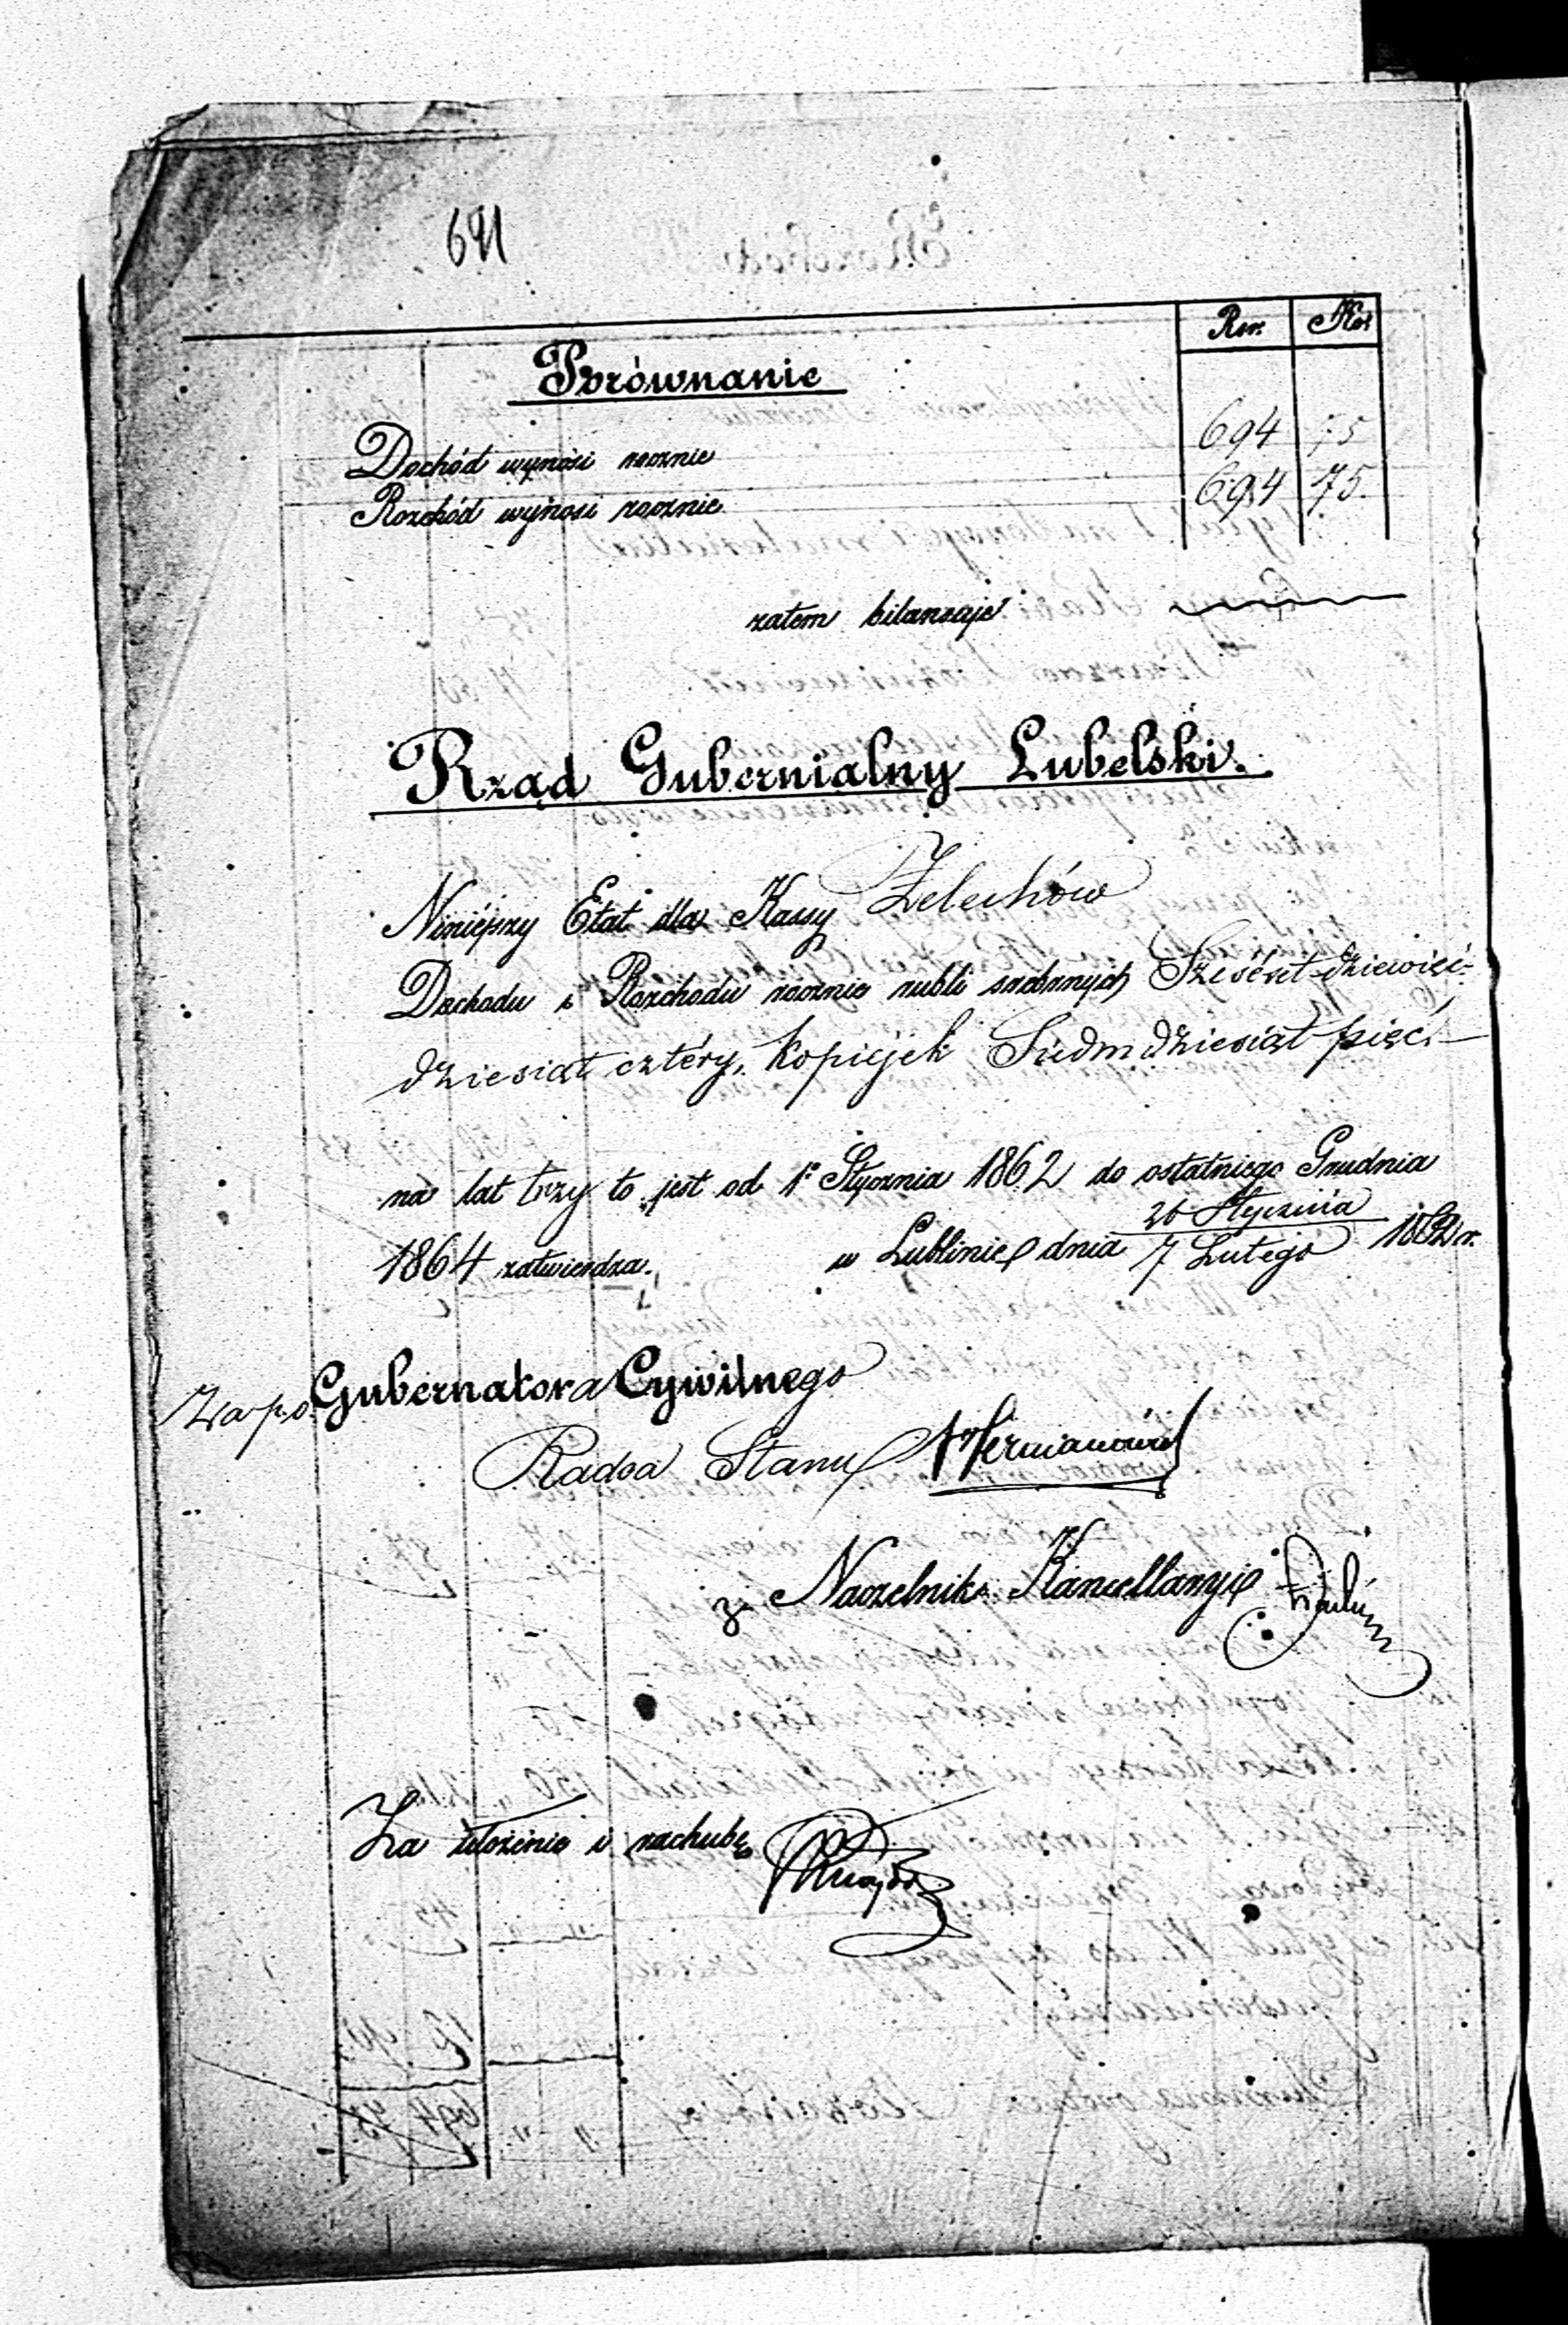 691
Rsr. Kop.
Porównanie
Dochód wynosi rocznie 694 75
Rozchód wynosi rocznie 694 75.
zatem bilansuje
Rząd Gubernialny Lubelski.
Niniéjszy Etat dla Kassy Żelechów
Dochodu i Rozchodu rocznie rubli srebrnych Sześćset dziewięć-
dziesiąt cztéry, kopiejek Siedmdziesiąt pięć.
na lat trzy to jest od 1º Stycznia 1862 do ostatniego Grudnia
1864 zatwierdza. w Lublinie dnia 26 Stycznia
7 Lutego 1862 r.
Za p.o. Gubernatora Cywilnego
Radca Stanu
z Naczelnika Kancellaryi
Za ułożenie i rachubę